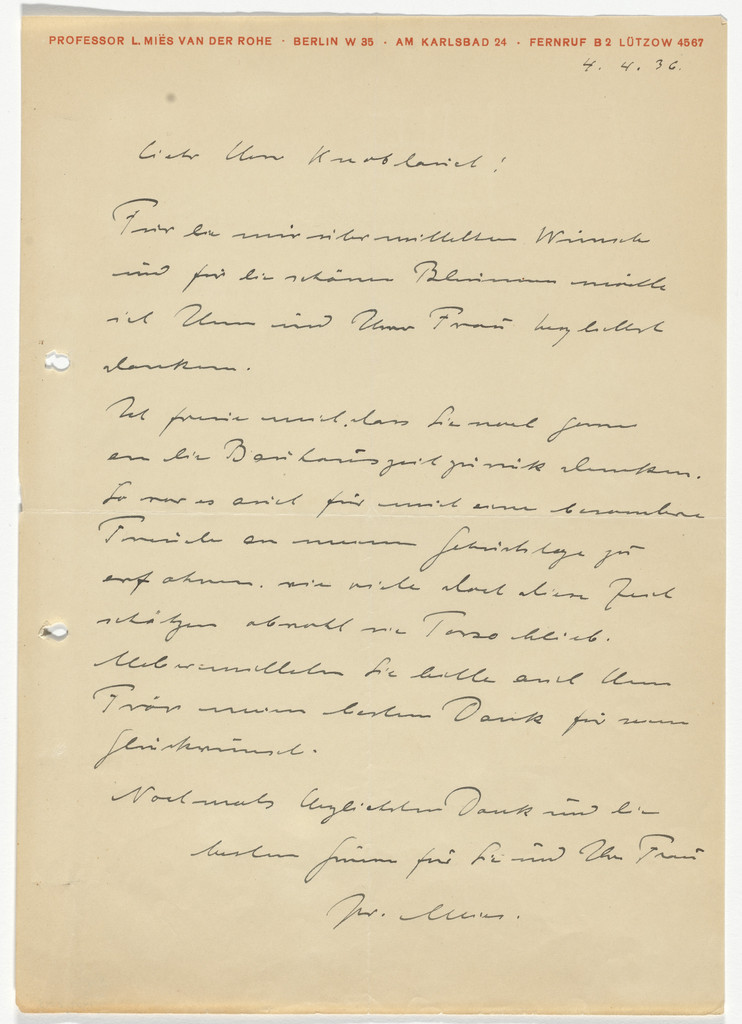 PROFESSOR L. MIËS VAN DER ROHE · BERLIN W 35 · AM KARLSBAD 24 · FERNRUF B 2 LÜTZOW 4567
4. 4. 36.
Lieber Herr Knoblauch!
Für die mir übermittelten Wünsche
und für die schönen Blumen möchte
ich Ihnen und Ihrer Frau herzlichst
danken.
Ich freue mich, dass Sie noch gern
an die Bauhauszeit zurück denken.
So war es auch für mich eine besondere
Freude an meinem Geburtstage zu
erfahren, wie viele doch diese Zeit
schätzen obwohl sie Torso blieb.
Uebermitteln Sie bitte auch Herrn
meinen besten Dank für seinen
Glückwunsch.
Nochmals herzlichsten Dank und die
besten Grüsse für Sie und Ihre Frau
Ihr. Mies.